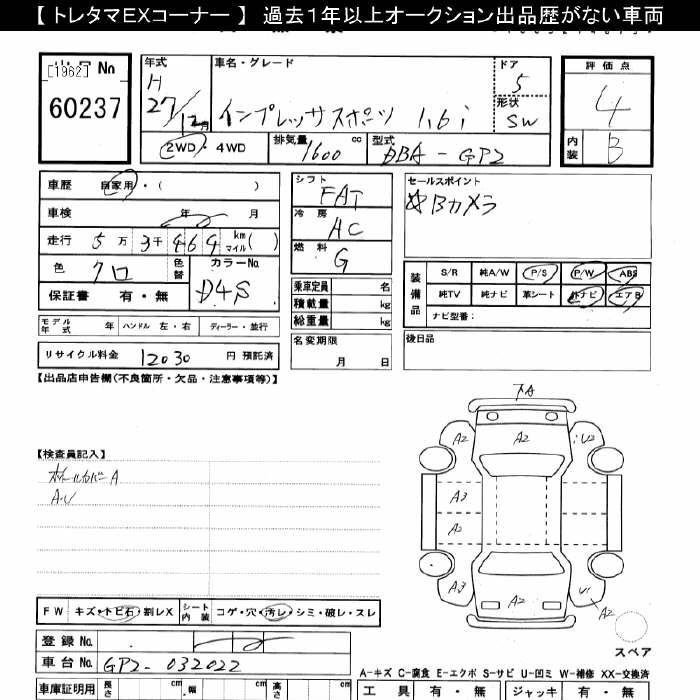 【 トレタマEXコーナー 】 過去1年以上オークション出品歴がない車両
[1962] No
60237
年式
H
27/12月
車名・グレード
インプレッサスポーツ 1,6i
ドア
5
形状
SW
評価点
4
内装
B
2WD・4WD
排気量
1600 cc
型式
DBA-GP2
車歴 自家用・( )
車検 年 月
走行 5万 3千 969 km マイル( )
色 クロ 色替
カラーNo.
D4S
保証書 有・無
シフト
FAT
冷房
AC
燃料
G
乗車定員 名
積載量 kg
総重量 kg
名変期限
月 日
セールスポイント
☆Bカメラ
装備品
S/R 純A/W P/S P/W ABS
純TV 純ナビ 革シート 外ナビ エアB
ナビ型番:
後日品
モデル年式 年 ハンドル 左・右 ディーラー・並行
リサイクル料金 12030 円 預託済
【出品店申告欄(不良箇所・欠品・注意事項等)】
【検査員記入】
ホイールカバーA
A.U
下A
A2
A2
U2
A3
A2
A3
A2
U1
A2
スペア
FW キズ・トビ石・割レX
シート内装 コゲ・穴・汚レ・シミ・破レ・スレ
登録No.
車台No. GP2-032022
車庫証明用 長さ cm 幅 cm 高さ cm
A-キズ C-腐食 E-エクボ S-サビ U-凹ミ W-補修 XX-交換済
工具 有・無 ジャッキ 有・無